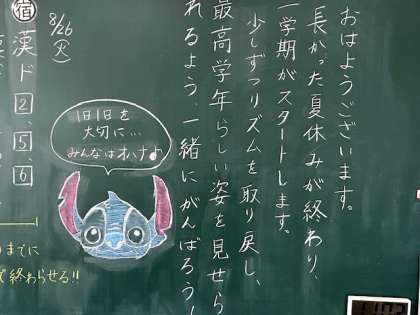 おはようございます。
長かった夏休みが終わり、
一学期がスタートします。
少しずつリズムを取り戻し、
最高学年らしい姿を見せら
れるよう、一緒にがんばろう！
1日1日を
大切に…
みんなはオハナ♪
8/26(火)
宿 漢ド 2、5、6
までに
終わらせる!!